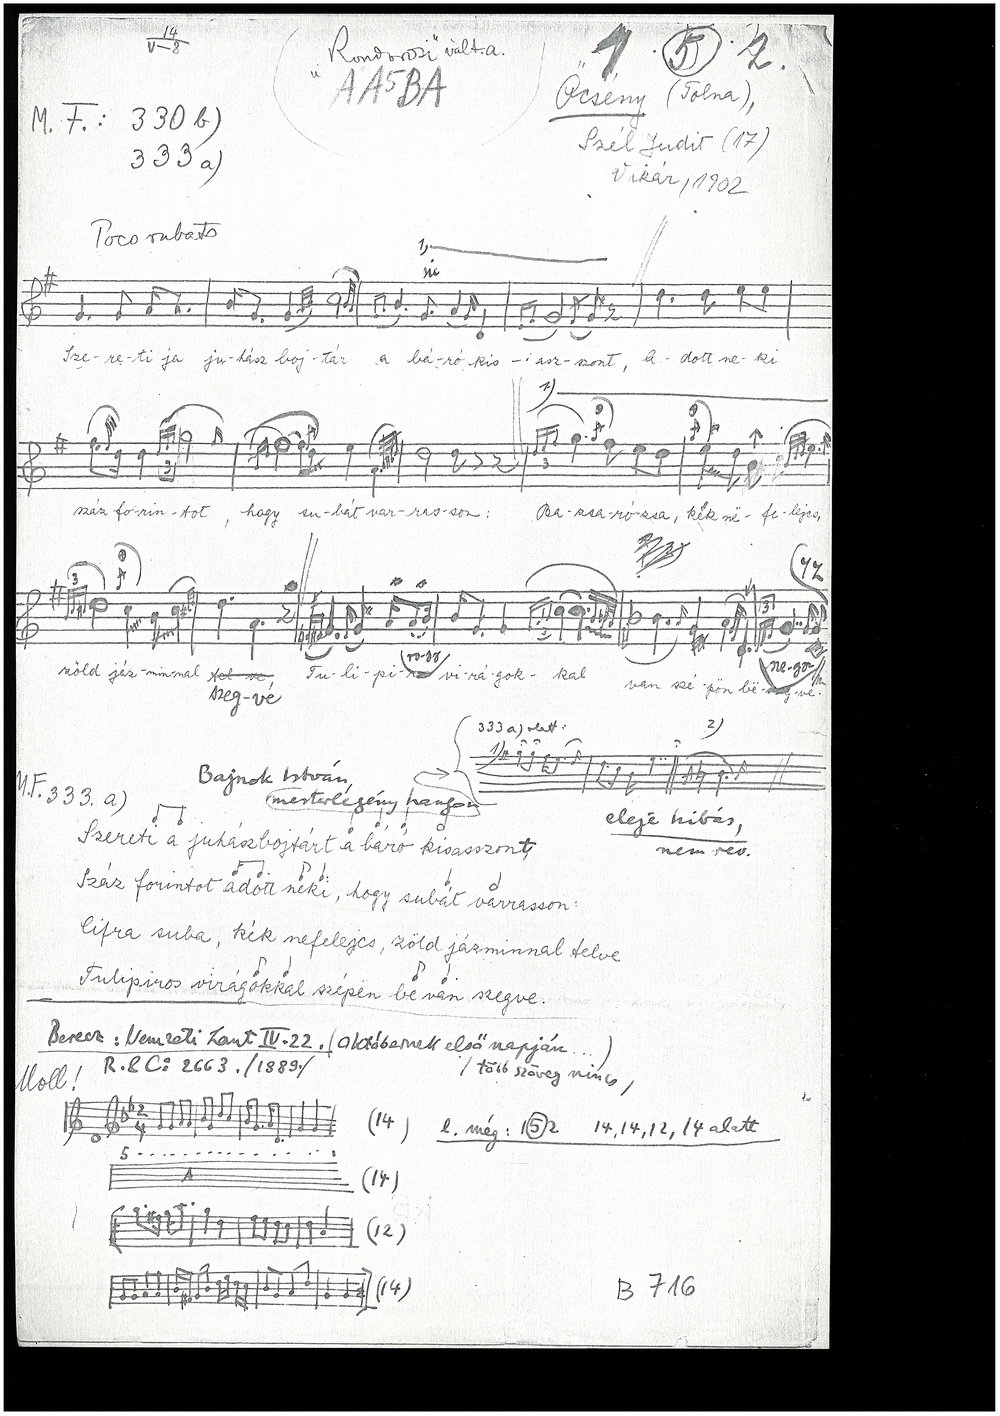 14
V-8
„Rondorosi" vált.a.
AA⁵BA
1. 5. 2.
Őcsény (Tolna),
Szél Judit (17)
Vikár, 1902
M. F.: 330 b)
333 a)
Poco rubato
1,
sic
Sze-re-ti ja ju-hász boj-tár a bá-ró kis-i asz-szont, a-dott ne-ki
1)
3
száz fo-rin-tot, hogy su-bát var-ras-son: Ba-zsa-ró-zsa, kék në-fe-lejcs,
3
zöld jáz-min-nal
szeg-vé
Tu-li-pi-
ro-ssz
vi-rá-gok-kal van szé-pön bë-
333 a) alatt:
1)
2)
eleje hibás,
nem rev.
M.F. 333. a)
Bajnok István,
mesterlegény hangon
Szereti a juhászbojtárt a báró kisasszont,
Száz forintot adott neki, hogy subát varrasson:
Cifra suba, kék nefelejcs, zöld jázminnal telve
Tulipiros virágokkal szépen be van szegve.
Berecz: Nemzeti Lant IV. 22. (Októbernek első napján...)
R. & C: 2663. /1889/
/több szöveg nincs,
Moll!
2
4
(14)
l. még: 1(5)2 14, 14, 12, 14 alatt
5 - - - - - - -
A
(14)
(12)
(14)
B 716